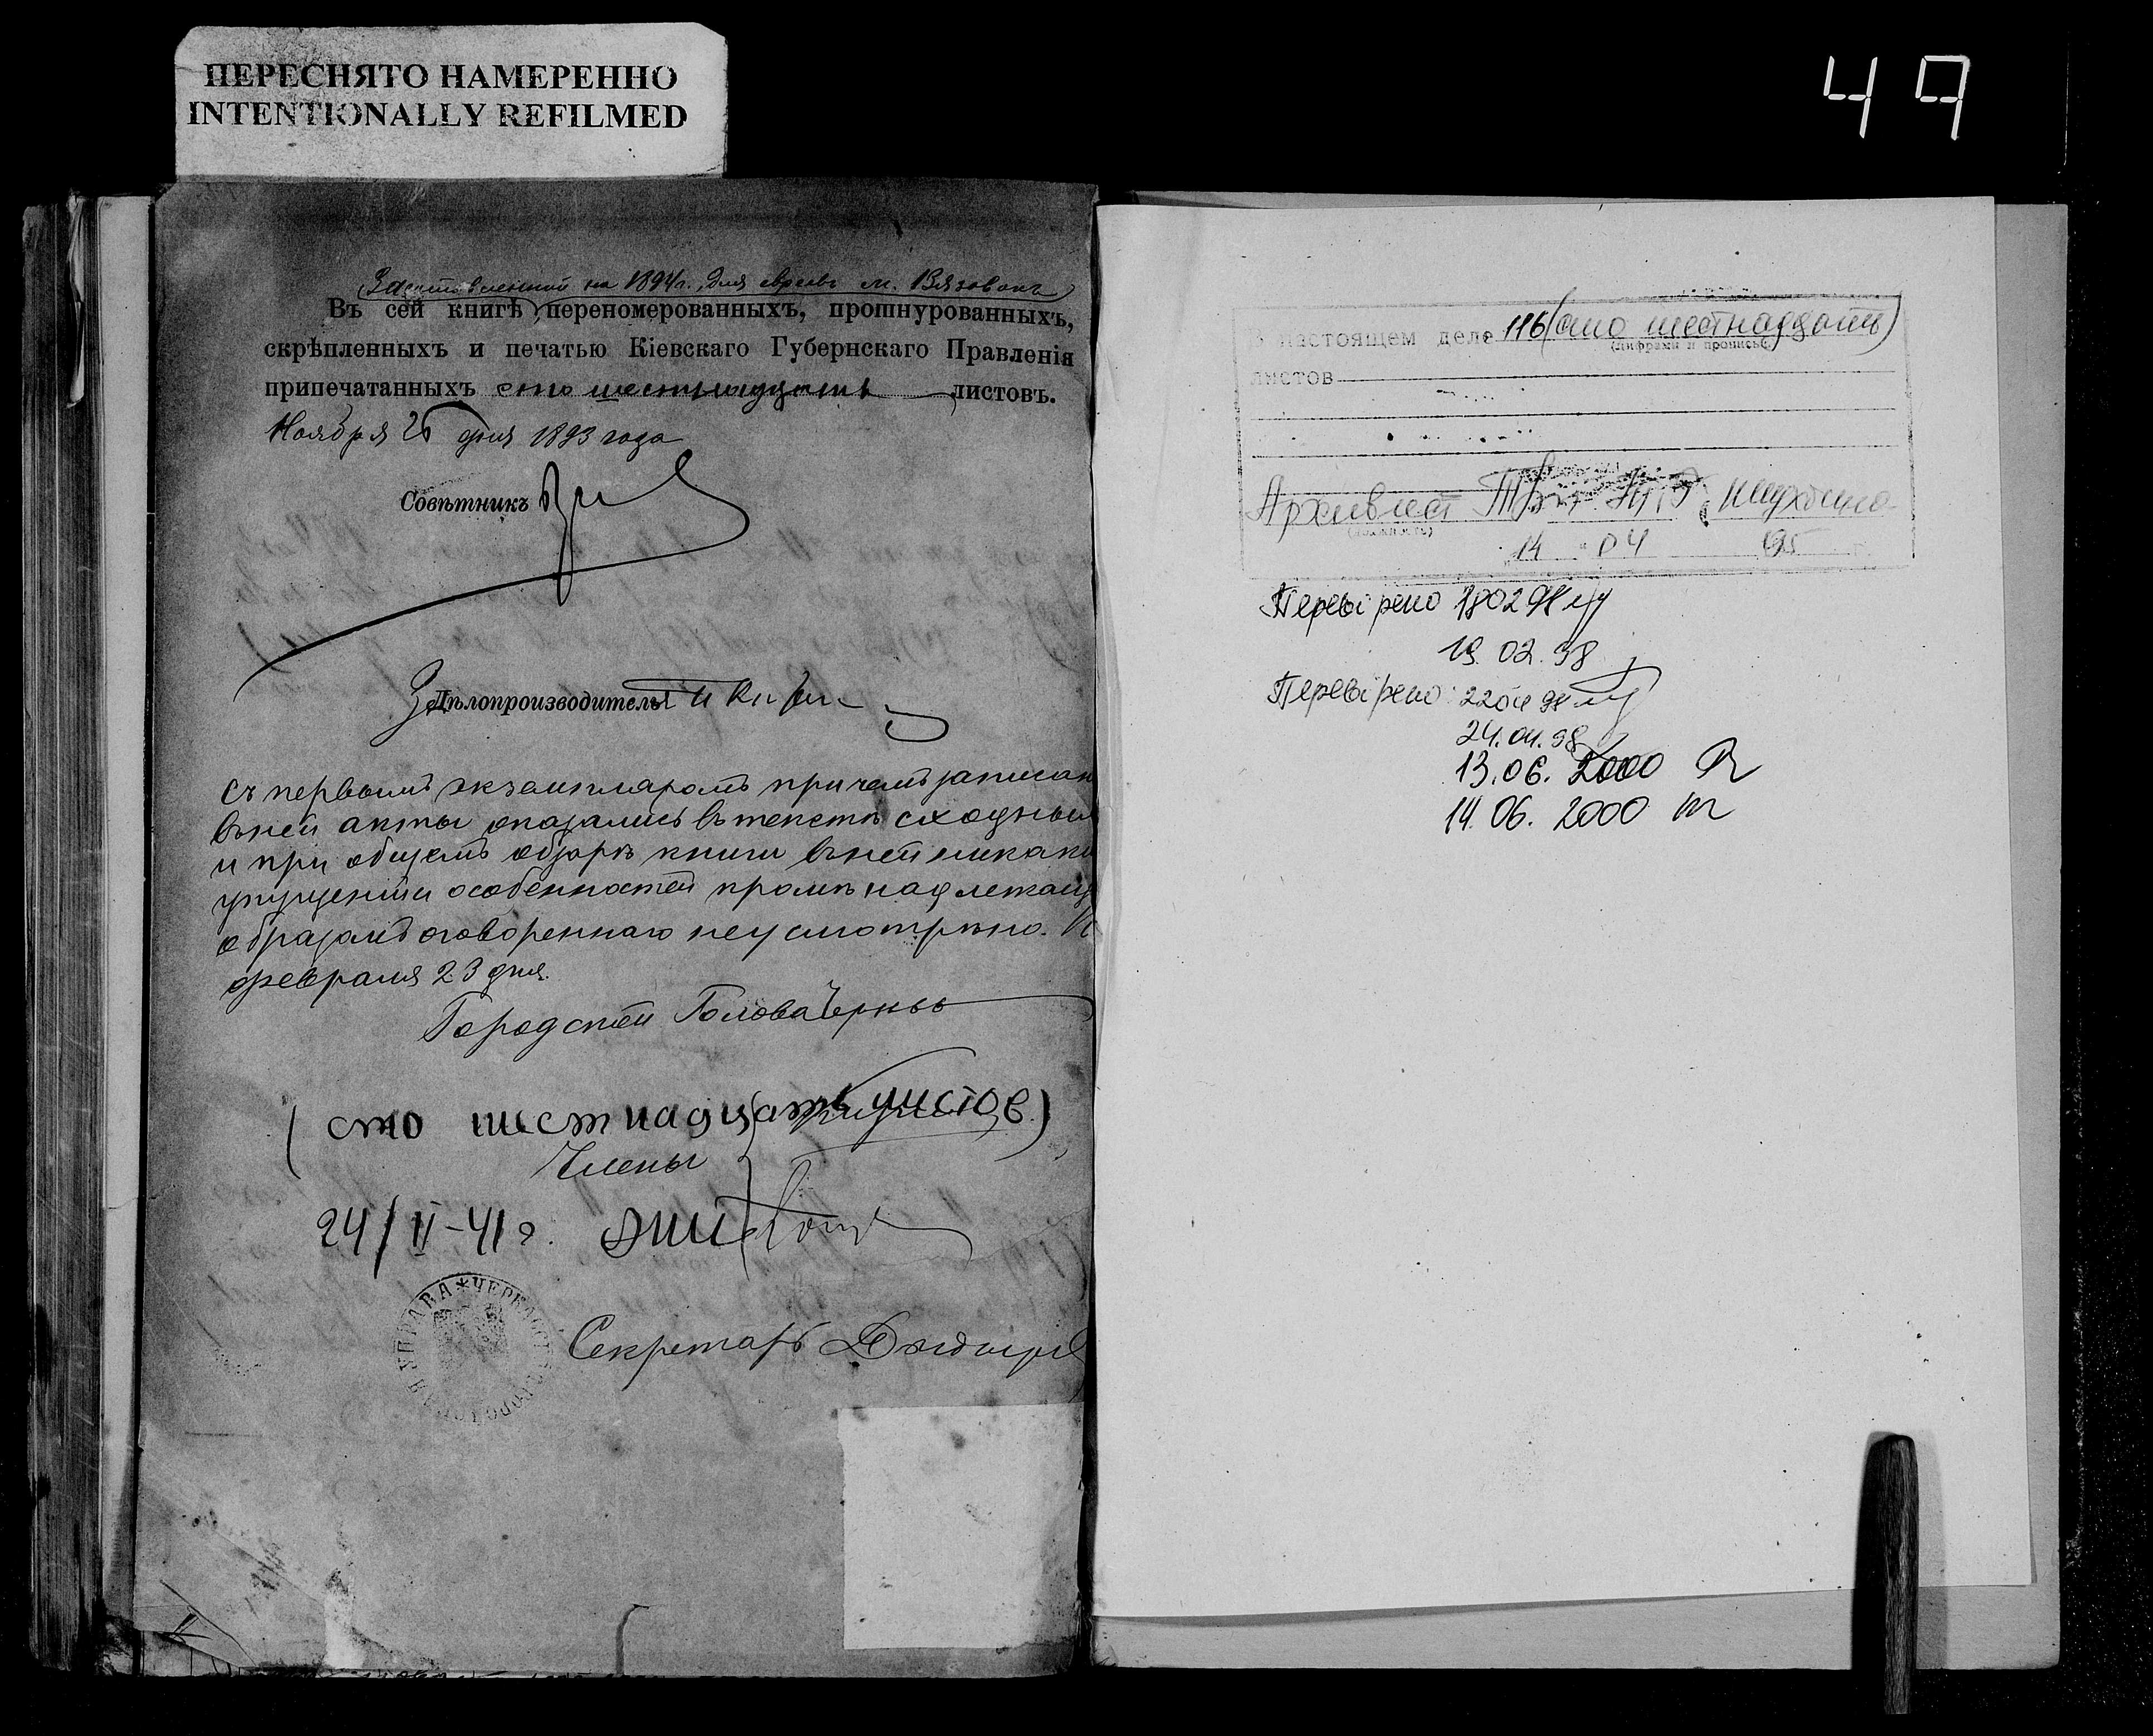 ПЕРЕСНЯТО НАМЕРЕННО
INTENTIONALLY REFILMED
49
на 1894 г. для евреевъ м. Вязовокъ
Въ сей книгѣ, переномерованныхъ, прошнурованныхъ,
скрѣпленныхъ и печатью Кіевскаго Губернскаго Правленія
припечатанныхъ сто шестнадцать листовъ.
Ноября 26 дня 1893 года
Совѣтникъ
За Дѣлопроизводителя
съ первымъ экземпляромъ причемъ записан
въ ней акты оказались въ текстѣ сходным
и при общемъ обзорѣ книги въ ней никаки
упущеній и особенностей кромѣ надлежащ
образомъ оговореннаго неусмотрѣно.
февраля 23 дня.
Городской Голова
(сто шестнадцать листов)
Члены
24/II-41 г.
УПРАВА * ЧЕРКАССК
Секретарь
В настоящем деле 116 (сто шестнадцать)
(цифрами и прописью)
листов
Архивист
(должность)
14 04 95
Перевірено 180298
19.02.98
Перевірено: 220498
24.04.98
13.06.2000
14.06.2000